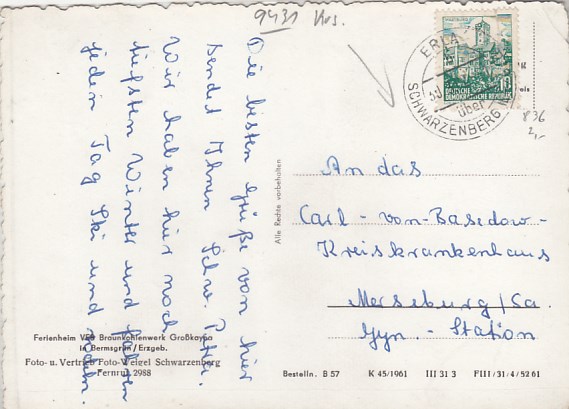 9431 Krs.
Die besten Grüße von hier
sendet Ihnen Schw.
Wir haben hier noch
tiefsten Winter und fahren
jeden Tag Ski und rodeln.
ERLA
über
SCHWARZENBERG
10
DEUTSCHE
DEMOKRATISCHE REPUBLIK
836
2,-
Alle Rechte vorbehalten
An das
Carl-von-Basedow-
Kreiskrankenhaus
Merseburg/Sa.
Gyn.-Station
Ferienheim VEB Braunkohlenwerk Großkayna
in Bermsgrün/Erzgeb.
Foto- u. Vertrieb Foto-Weigel Schwarzenberg
Fernruf 2988
Bestelln. B 57 K 45/1961 III 31 3 FIII/31/4/5261